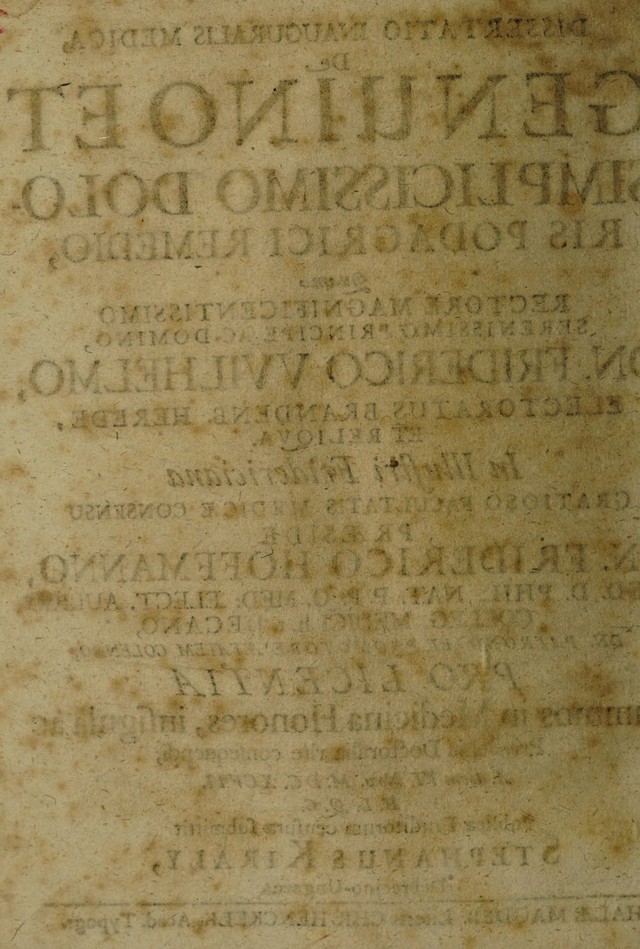 DISSERTATIO INAUGURALIS MEDICA,
DE
GENUINO ET
SIMPLICISSIMO DOLO-
RIS PODAGRICI REMEDIO,
Quam
RECTORE MAGNIFICENTISSIMO
SERENISSIMO PRINCIPE AC DOMINO,
N. FRIDERICO VVILHELMO,
ELECTORATUS BRANDENB. HEREDE,
ET RELIQVA,
In Illustri Fridericiana
GRATIOSO FACULTATIS MEDICÆ CONSENSU
PRÆSIDE
N. FRIDERICO HOFFMANNO,
D. PHIL. NAT. P. P. O. MED. ELECT. AULICO,
DECANO,
COLENDO,
PRO LICENTIA
in Medicina Honores, insignia ac
Doctoralia rite consequendi,
M. DC. XCVII.
H. L. Q. C.
Publicæ Eruditorum censuræ submittit
STEPHANUS KIRALY,
Debrecino-Ungarus.
HALÆ MAGDEB. CHR. HENCKELII, Acad. Typogr.